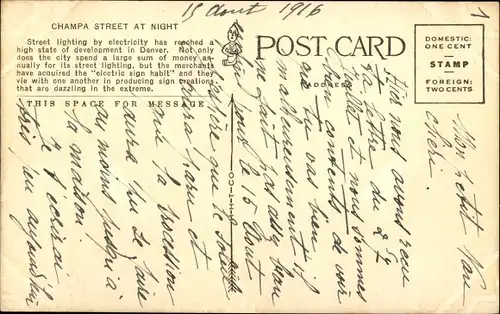 15 Aout 1916
CHAMPA STREET AT NIGHT
Street lighting by electricity has reached a
high state of development in Denver. Not only
does the city spend a large sum of money an-
nually for its street lighting, but the merchants
have acquired the "electric sign habit" and they
vie with one another in producing sign creations
that are dazzling in the extreme.
THIS SPACE FOR MESSAGE
POST CARD
ADDRESS
DOMESTIC:
ONE CENT
STAMP
FOREIGN:
TWO CENTS
Mon petit
cheri.
Hier nous avons recu
ta lettre du 27
Juillet et nous sommes
bien contents de voir
que tu vas bien
malheureusement il
ne fait pas assez beau
pour le 15 Aout
j'espère que le soleil
paru et
que la procession
aura pu se faire
au moins jusqu'à
la maison.
Je t'écrirai
aujourd'hui